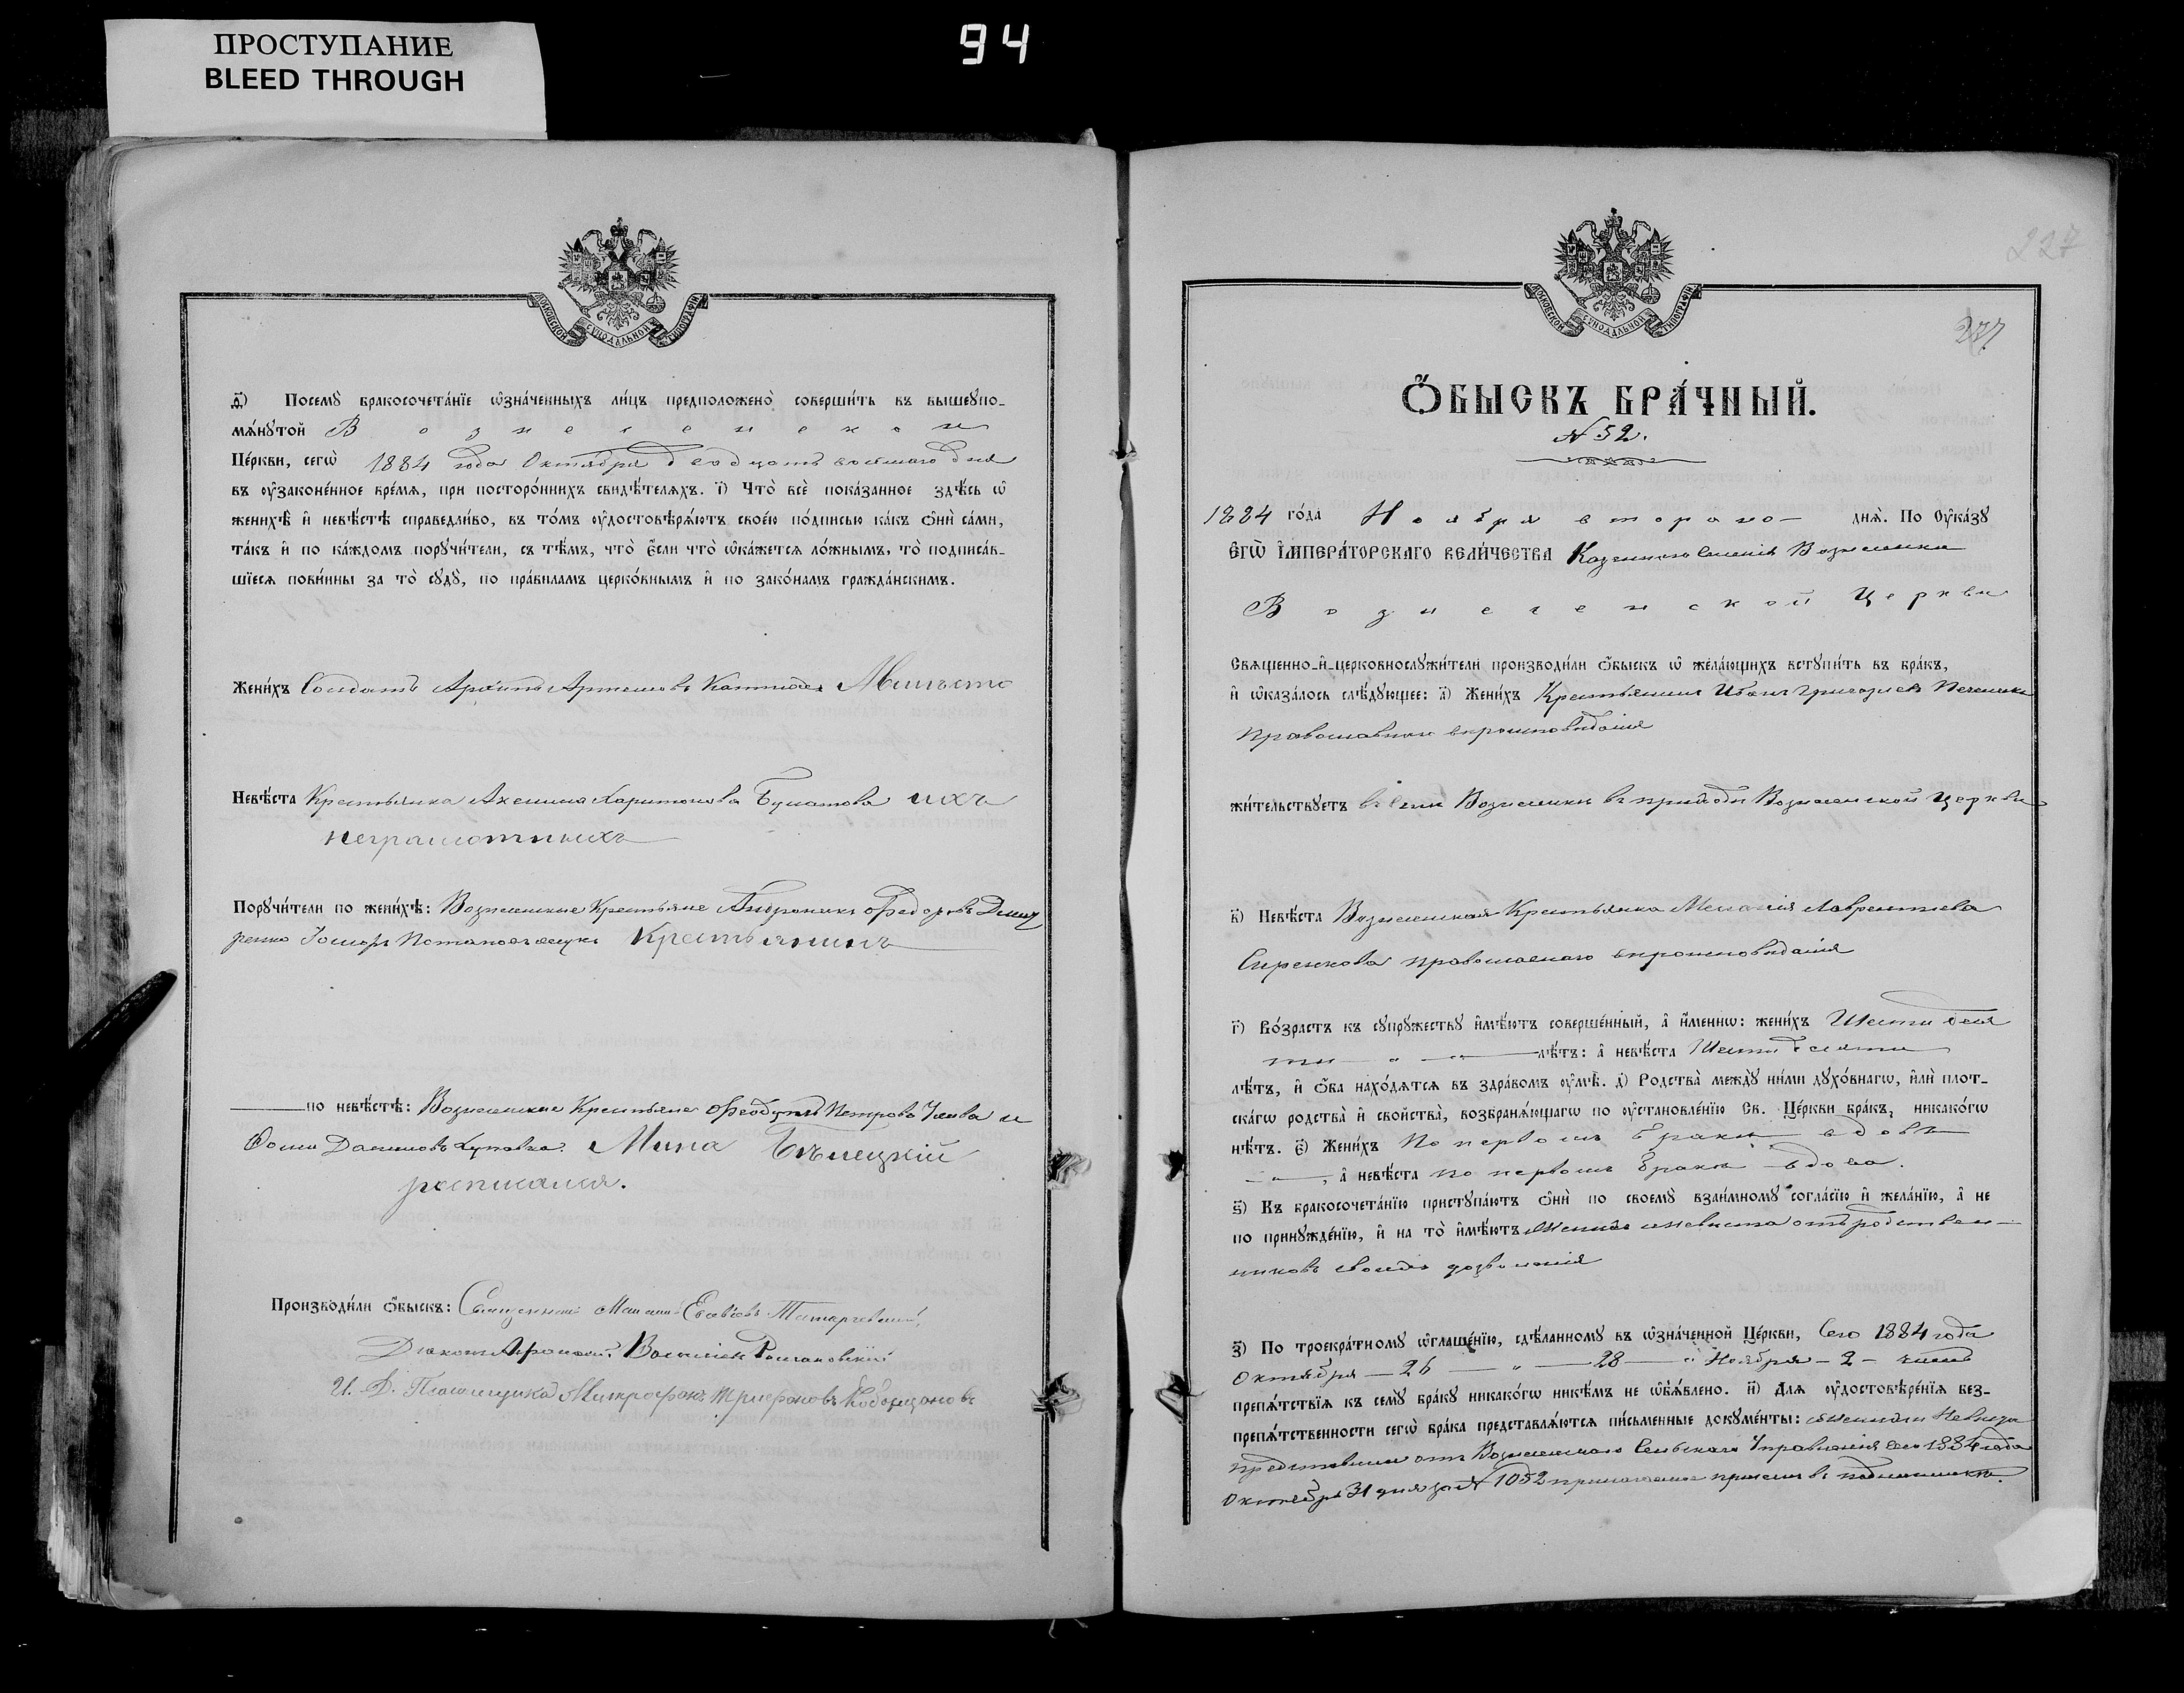 ПРОСТУПАНИЕ
BLEED THROUGH
94
МОСКОВСКОЙ СѴНОДАЛЬНОЙ ТИПОГРАФІИ
д҃) Посемꙋ̀ бракосочета́нїе ѡ҆зна́ченныхъ ли́цъ предположено̀ соверши́ть въ вышеꙋпо-
мѧ́нꙋтой Вознесенской
Це́ркви, сегѡ̀ 1884 года Октября двадцать восьмаго дня
въ ᲂу҆законе́нное вре́мѧ, при посторо́ннихъ свидѣ́телѧхъ. і҃) Что̀ всѐ пока́занное здѣ́сь ѡ҆
женихѣ̀ и҆ невѣ́стѣ справедли́во, въ то́мъ ᲂу҆достовѣрѧ́ютъ свое́ю по́дписью ка́къ ѻ҆нѝ са́ми,
та́къ и҆ по ка́ждомъ порꙋчи́тели, съ тѣ́мъ, что̀ є҆́сли что̀ ѡ҆ка́жетсѧ ло́жнымъ, то̀ подписа́в-
шїесѧ пови́нны за то̀ сꙋдꙋ̀, по пра́виламъ церко́внымъ и҆ по зако́намъ гражда́нскимъ.
Жени́хъ Солдатъ Артемовъ
Невѣ́ста Крестьянка Харитонова Булатова ихъ
неграмотныхъ
Порꙋчи́тели по женихѣ̀: Вознесенские Крестьяне Андроникъ Федоровъ
Крестьянинъ
по невѣ́стѣ: Вознесенские Крестьяне Феодулъ Петровъ и
Фома Даниловъ Мина Бѣлецкій
росписался.
Производи́ли ѻ҆́быскъ: Священникъ
Діаконъ Василій Романовскій
И. Д. Псаломщика Митрофанъ Трифоновъ
227
277
Ѻ҆́БЫСКЪ БРА́ЧНЫЙ.
N 52.
МОСКОВСКОЙ СѴНОДАЛЬНОЙ ТИПОГРАФІИ
1884 го́да Ноября втораго днѧ̀. По Оу҆ка́зꙋ
Є҆ГѠ̀ І҆МПЕРА́ТОРСКАГО ВЕЛИ́ЧЕСТВА Казеннаго Селенія Вознесенки
Вознесенской Церкви
Свѧщенно-и҆-церковнослꙋжи́тели производи́ли ѻ҆́быскъ ѡ҆ жела́ющихъ встꙋпи́ть въ бра́къ,
и҆ ѡ҆каза́лось слѣ́дꙋющее: а҃) Жени́хъ Крестьянинъ Иванъ Григорьевъ
Православнаго вероисповѣданія
жи́тельствꙋетъ въ Селѣ Вознесенкѣ въ приходѣ Вознесенской Церкви
в҃) Невѣ́ста Вознесенская Крестьянка Меланія Лаврентіева
православнаго вероисповѣданія
г҃) Во́зрастъ къ сꙋпрꙋжествꙋ и҆мѣ́ютъ соверше́нный, а҆ и҆́меннѡ: жени́хъ Шестидеся
ти лѣ́тъ: а҆ невѣ́ста Шестидесяти
лѣ́тъ, и҆ ѻ҆́ба нахо́дѧтсѧ въ здра́вомъ ᲂу҆мѣ̀. д҃) Родства̀ междꙋ̀ ни́ми дꙋхо́внагѡ, и҆лѝ плот-
ска́гѡ родства̀ и҆ сво́йства, возбранѧ́ющагѡ по ᲂу҆становле́нїю Св. Це́ркви бра́къ, никако́гѡ
нѣ́тъ. є҃) Жени́хъ По первомъ бракѣ вдовъ
, а҆ невѣ́ста по первомъ бракѣ вдова.
ѕ҃) Къ бракосочета́нїю пристꙋпа́ютъ ѻ҆нѝ по своемꙋ̀ взаи́мномꙋ согла́сїю и҆ жела́нїю, а҆ не
по принꙋжде́нїю, и҆ на то̀ и҆мѣ́ютъ Женихъ и невѣста отъ родствен-
никовъ своихъ дозволенія
з҃) По троекра́тномꙋ ѡ҆глаше́нїю, сдѣ́ланномꙋ въ ѡ҆зна́ченной Це́ркви, Сего 1884 года
Октября — 26 — „ — 28 — „ Ноября — 2 — чиселъ
препѧ́тствїѧ къ семꙋ̀ бра́кꙋ никако́гѡ никѣ́мъ не ѡ҆б̾ѧ́влено. и҃) Длѧ ᲂу҆достовѣре́нїѧ без-
препѧ́тственности сегѡ̀ бра́ка представлѧ́ютсѧ пи́сьменные докꙋме́нты:
отъ Вознесенскаго Сельскаго Управленія сего 1884 года
Октября 31 дня за N 1052